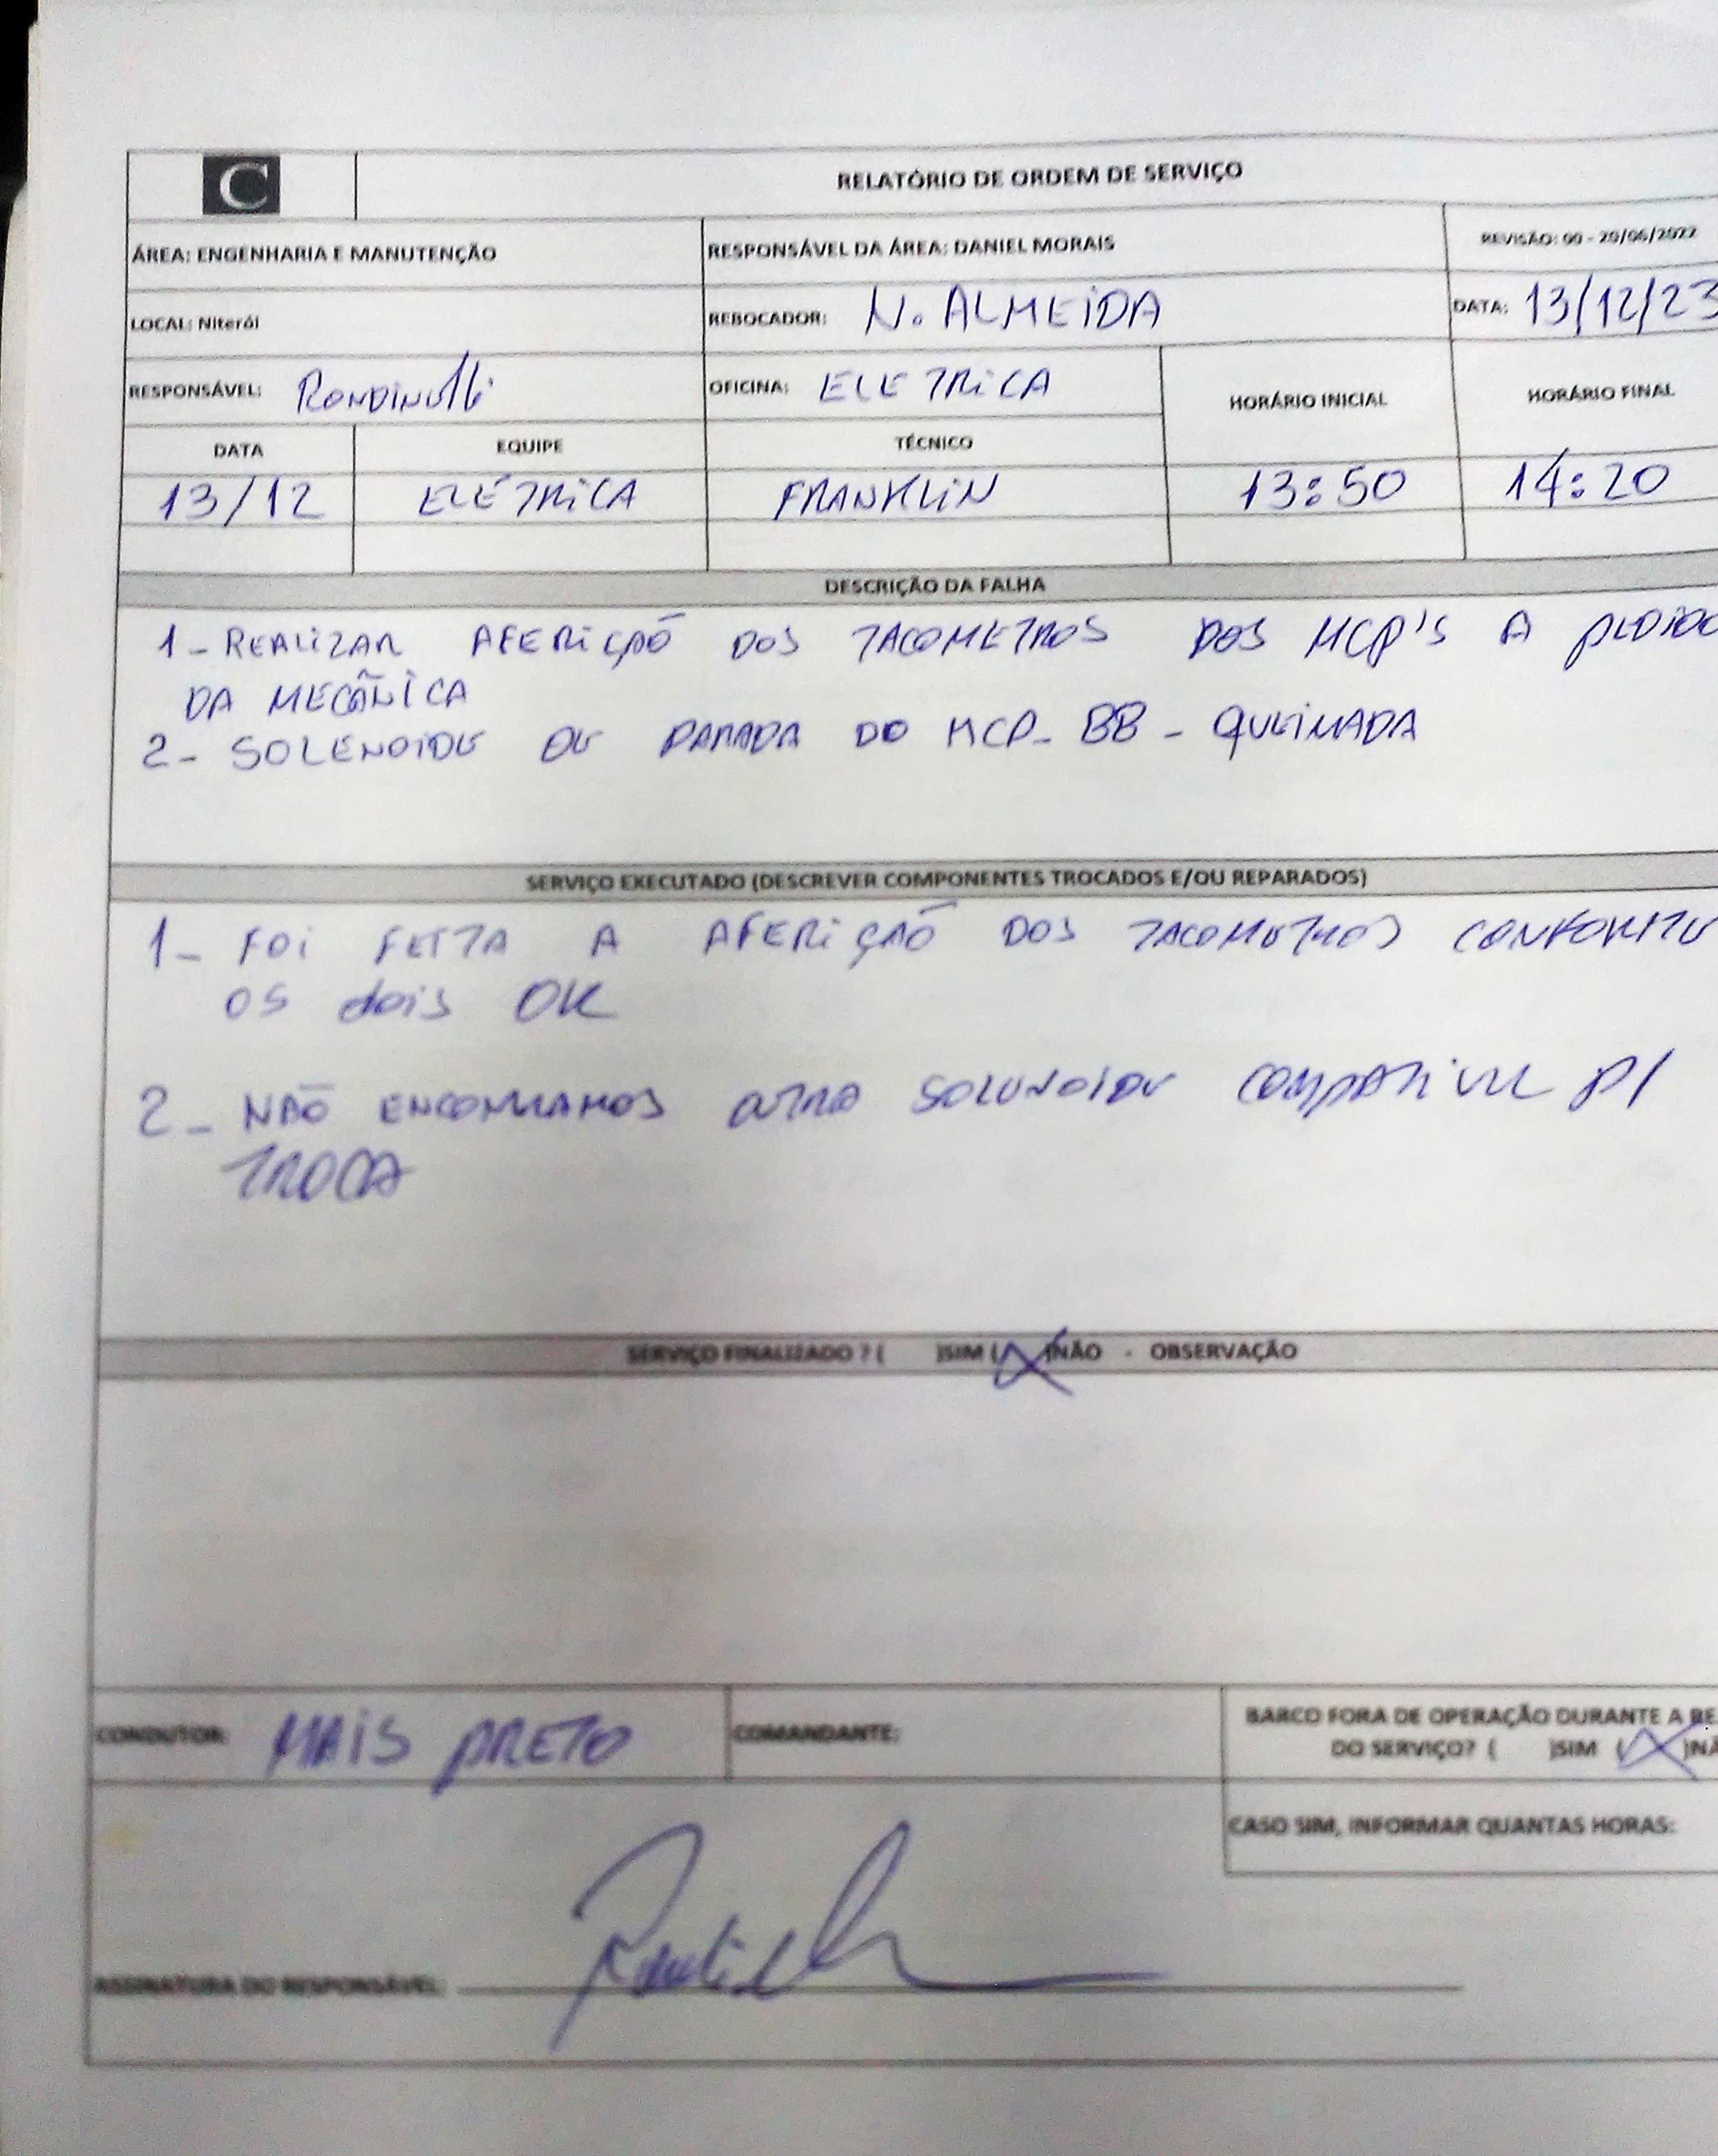 C
RELATÓRIO DE ORDEM DE SERVIÇO
ÁREA: ENGENHARIA E MANUTENÇÃO
RESPONSÁVEL DA ÁREA: DANIEL MORAIS
REVISÃO: 00 - 20/06/2022
LOCAL: Niterói
REBOCADOR: N. ALMEIDA
DATA: 13/12/23
RESPONSÁVEL: RONDINELLI
OFICINA: ELETRICA
HORÁRIO INICIAL
HORÁRIO FINAL
DATA
EQUIPE
TÉCNICO
13/12
ELÉTRICA
FRANKLIN
13:50
14:20
DESCRIÇÃO DA FALHA
1 - REALIZAR AFERIÇÃO DOS TACOMETROS DOS MCP'S A PEDIDO
DA MECÂNICA
2 - SOLENOIDE DE PARADA DO MCP - BB - QUEIMADA
SERVIÇO EXECUTADO (DESCREVER COMPONENTES TROCADOS E/OU REPARADOS)
1 - FOI FEITA A AFERIÇÃO DOS TACOMETROS CONFORME
OS dois OK
2 - NÃO ENCONTRAMOS OUTRA SOLENOIDE COMPATIVEL P/
TROCA
SERVIÇO FINALIZADO ? ( )SIM (X)NÃO - OBSERVAÇÃO
CONDUTOR: MAIS PRETO
COMANDANTE:
BARCO FORA DE OPERAÇÃO DURANTE A RE
DO SERVIÇO? ( )SIM (X)NÃ
CASO SIM, INFORMAR QUANTAS HORAS:
ASSINATURA DO RESPONSÁVEL: